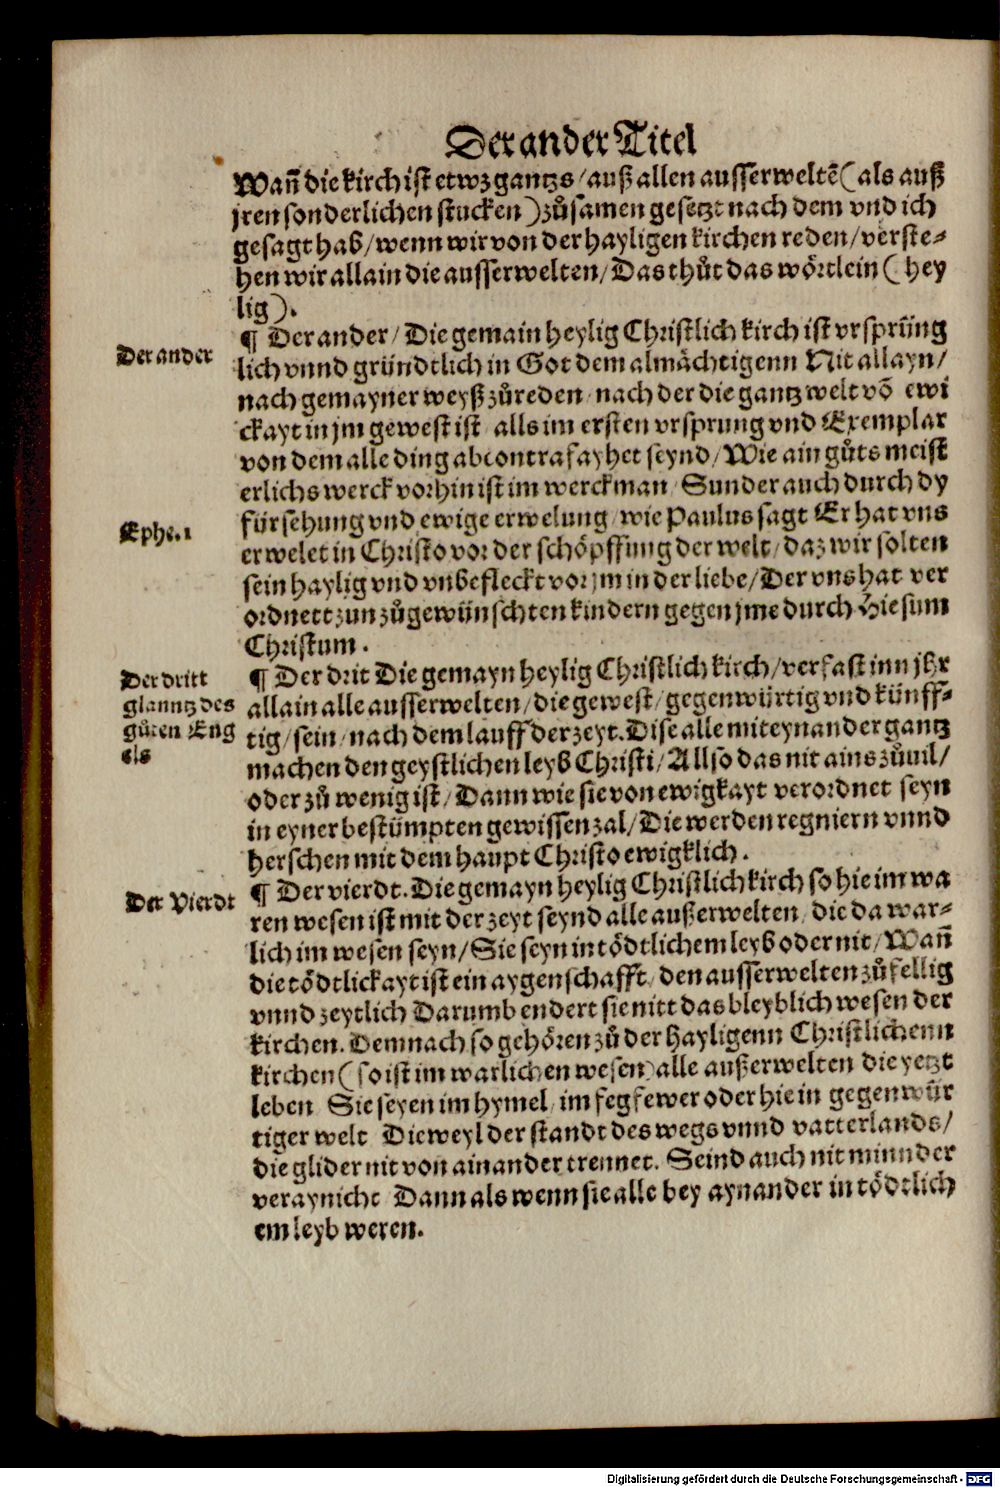 Der ander Titel
Wañ die kirch ist etwz gantzs / auß allen ausserweltē ( als auß
jren sonderlichen stucken ) zůsamen gesetzt nach dem vnd ich
gesagt hab / wenn wir von der hayligen kirchen reden / verste⸗
hen wir allain die ausserwelten / Das thůt das wörtlein ( hey
lig ) .
Der ander
¶ Der ander / Die gemain heylig Christlich kirch ist vrsprüng
lich vnnd gründtlich in Got dem almächtigenn Nit allayn /
nach gemayner weyß zůreden / nach der die gantz welt vō ewi
ckayt in jm gewest ist alls im ersten vrsprung vnd Exemplar
von dem alle ding abcontrafayhet seynd / Wie ain gůts meist
erlichs werck vorhin ist im werckman / Sunder auch durch dy
fürsehung vnd ewige erwelung / wie Paulus sagt Er hat vns
Ephe. 1
erwelet in Christo vor der schöpffung der welt / daz wir solten
sein haylig vnd vnbefleckt vor jm in der liebe / Der vns hat ver
ordnett zun zůgewünschten kindern gegen jme durch Hiesum
Christum .
Der dritt
glanntz des
gůten Eng
els
¶ Der drit Die gemayn heylig Christlich kirch / verfast inn jhr
allain alle ausserwelten / die gewest / gegenwürtig vnd künff⸗
tig / sein / nach dem lauff der zeyt. Dise alle miteynander gantz
machen den geystlichen leyb Christi / Allso das nit ains zůuil /
oder zů wenig ist / Dann wie sie von ewigkayt verordnet seyn
in eyner bestümpten gewissen zal / Die werden regniern vnnd
herschen mit dem haupt Christo ewigklich .
Der Vierdt
¶ Der vierdt. Die gemayn heylig Christlich kirch so hie im wa
ren wesen ist mit der zeyt seynd alle außerwelten / die da war⸗
lich im wesen seyn / Sie seyn in tödtlichem leyb oder nit / Wañ
die tödtlickayt ist ein aygenschafft / den ausserwelten zůfellig
vnnd zeytlich Darumb endert sie nitt das bleyblich wesen der
kirchen. Demnach so gehören zů der hayligenn Christlichenn
kirchen ( so ist im warlichen wesen ) alle außerwelten die yetzt
leben Sie seyen im hymel / im fegfewer oder hie in gegenwür
tiger welt Dieweyl der standt des wegs vnnd vatterlands /
die glider nit von ainander trennet. Seind auch nit minnder
veraynicht Dann als wenn sie alle bey aynander in tödtlich
em leyb weren.
Digitalisierung gefördert durch die Deutsche Forschungsgemeinschaft - DFG